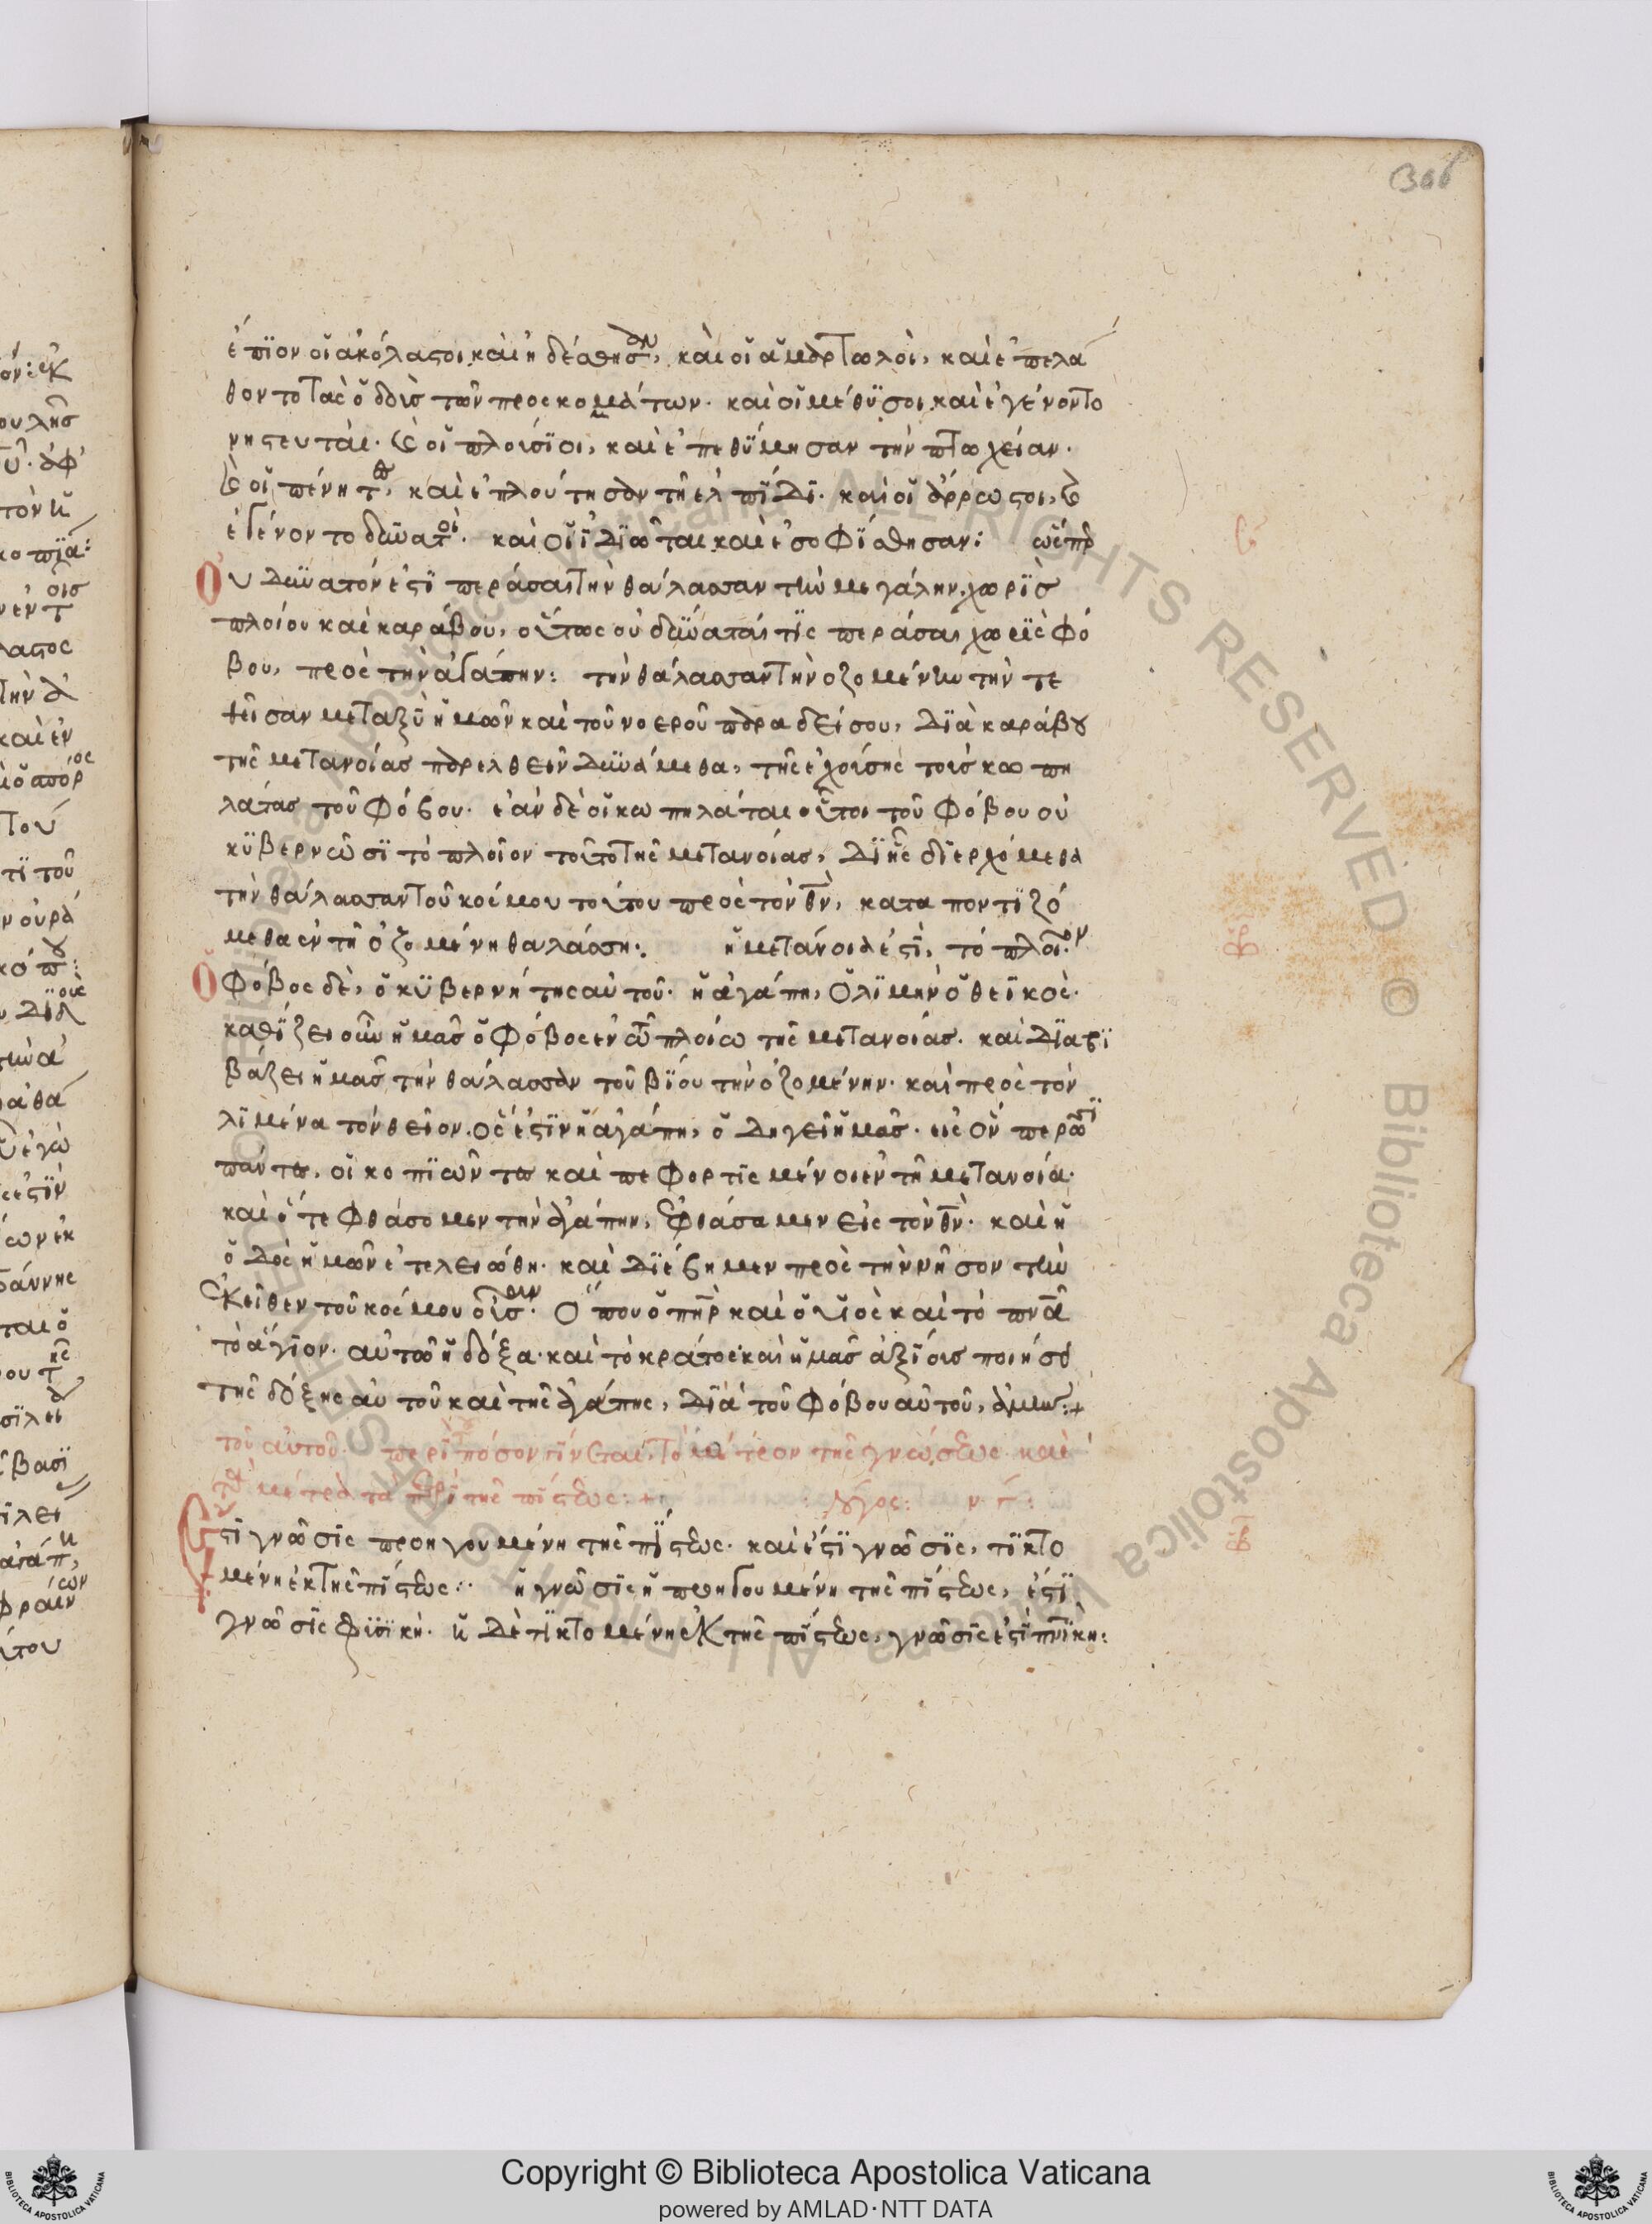 306
ἔπϊον οἵ ἀκόλαστοι καὶ ἠδέσθησαν, καὶ οἵ ἁμαρτωλοὶ, καὶ ἐπελά
θοντο τὰς ὅδοὶσ τῶν προσκομάτων. καὶ οἵ μέθϋσοι καὶ ἐγένοντο
νηστευταί. καὶ οἵ πλούσϊοι, καὶ ἐπεθΰμησαν τὴν πτωχείαν.
καὶ οἵ πένητες, καὶ ἐπλούτησαν τῆ ἐλπΐδϊ. καὶ οἵ ἄρρωστοι, καὶ
ἐγένοντο δϋνατοὶ. καὶ οἵ ϊδϊῶται καὶ ἐσοφΐσθησαν: ὥσπερ
Οὐ δϋνατόν ἐστϊ περάσαι τὴν θάλασσαν τὴν μεγάλην, χωρῒσ
πλοίου καὶ καράβου, οὕτως οὐ δΰναταί τϊς περάσαι χωρῒς φό
βου, πρὸς τὴν ἀγάπην: τὴν θάλασσαν τὴν ὀζομένην τὴν τε
θεῖσαν μεταξὺ ἥμῶν καὶ τοῦ νοεροῦ παραδείσου, δϊὰ καράβου
τῆς μετανοίασ παρελθεῖν δϋνάμεθα, τῆς ἐχούσης τοὺσ κωπη
λάτασ τοῦ φόβου. ἐὰν δὲ οἵ κωπηλάται οὗτοι τοῦ φόβου οὐ
κϋβερνῶσϊ τὸ πλοῖον τοῦτο τῆς μετανοίασ, δϊ ἧς δϊερχόμεθα
τὴν θάλασσαν τοῦ κόσμου τούτου πρὸς τὸν θν, καταποντϊζό
μεθα ἐν τῆ ὀζομένη θαλάσση: ἥ μετάνοιά ἐστϊ, τὸ πλοῖον.
Ὅ φόβος δὲ, ὅ κϋβερνήτης αὐτοῦ. ἥ ἀγάπη, ὅ λϊμὴν ὅ θεϊκὸς.
καθΐζει οὖν ἥμᾶσ ὅ φόβος ἐν τῶ πλοίω τῆς μετανοίασ. καὶ δϊαβϊ
βάζει ἥμᾶσ τὴν θάλασσαν τοῦ βΐου τὴν ὀζομένην. καὶ πρὸς τὸν
λϊμένα τὸν θεῖον. ὅς ἐστϊν ἥ ἀγάπη, ὅδηγεῖ ἥμᾶσ. εἰς ὃν περῶσϊ
πάντες, οἵ κοπϊῶντες καὶ πεφορτϊσμένοι ἐν τῆ μετανοία.
καὶ ὅτε φθάσομεν τὴν ἀγάπην, ἐφθάσαμεν εἰς τὸν θν. καὶ ἥ
ὅδὸς ἥμῶν ἐτελειώθη. καὶ δϊέβημεν πρὸς τὴν νῆσον τὴν
ἐκεῖθεν τοῦ κόσμου οὖσαν. Ὅπου ὅ πηρ καὶ ὅ υἵὸς καὶ τὸ πνα
τὸ ἅγϊον. αὐτῶ ἥ δόξα καὶ τὸ κράτος καὶ ἥμᾶσ ἀξΐουσ ποιήσει
τῆς δόξης αὐτοῦ καὶ τῆς ἀγάπης, δϊὰ τοῦ φόβου αὐτοῦ, ἀμήν:+
τοῦ αὐτοῦ. περὶ πόσον γΐνεται τὸ μέτρον τῆς γνώσεως. καὶ
τὰ μέτρα τὰ περὶ τῆς πΐστεως:+ λόγος: ν. γ:
Ἔστϊ γνῶσϊς προηγουμένη τῆς πΐστεως. καὶ ἔστϊ γνῶσϊς, τϊκτο
μένη ἐκ τῆς πΐστεως: ἥ γνῶσϊς ἥ προηγουμένη τῆς πΐστεως, ἐστϊ
γνῶσϊς φϋσϊκή. ἥ δὲ τϊκτομένη ἐκ τῆς πΐστεως, γνῶσϊς ἐστϊ πνϊκη:
Copyright © Biblioteca Apostolica Vaticana
powered by AMLAD·NTT DATA